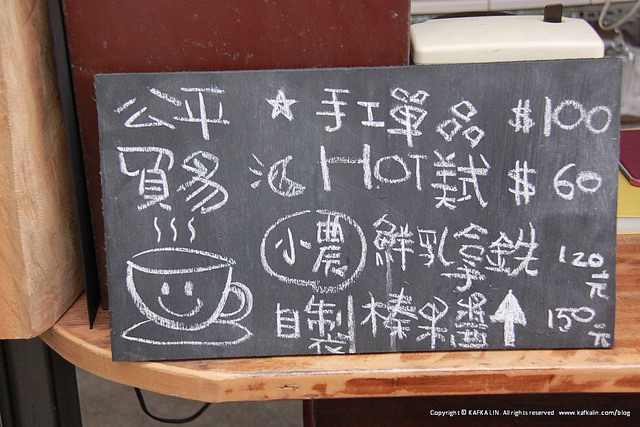 公平 ☆ 手工單品 $100
貿易 HOT美式 $60
小農 鮮乳拿鐵 120元
自製 榛果醬 150元
Copyright © KAFKALIN. All rights reserved www.kafkalin.com/blog